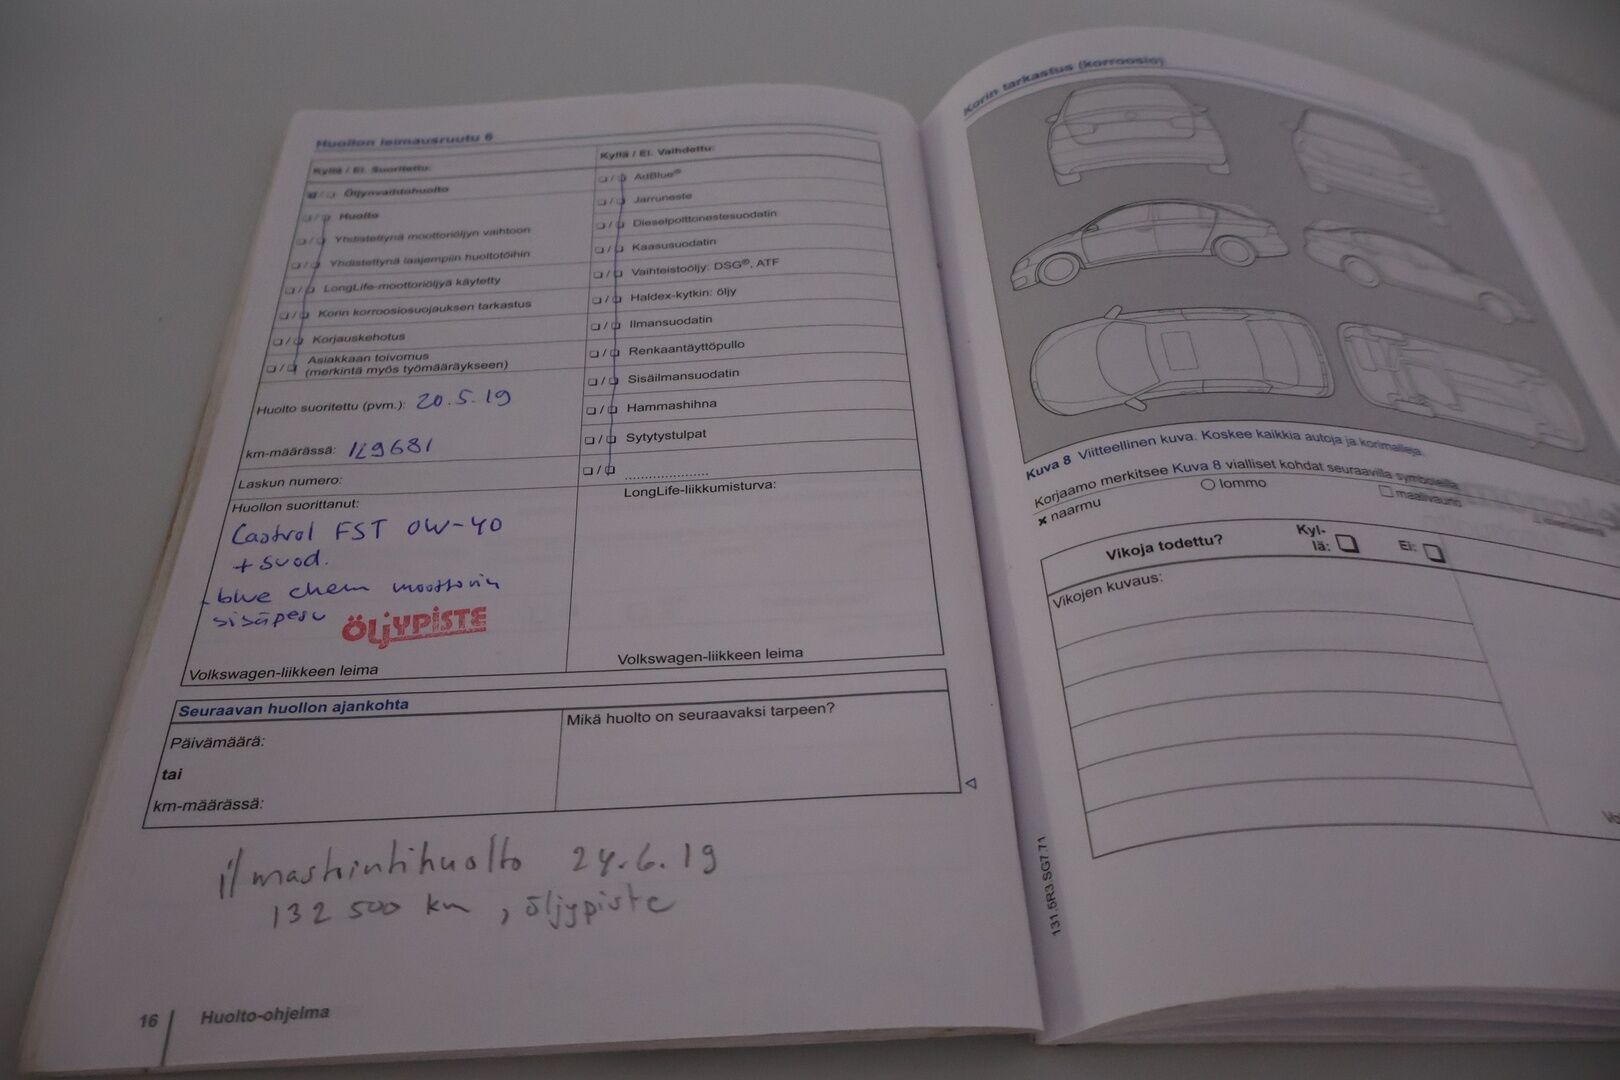 Huollon leimausruutu 6
Kyllä / Ei. Suoritettu:
❑ / ❑ Öljynvaihtohuolto
❑ / ❑ Huolto
❑ / ❑ Yhdistettynä moottoriöljyn vaihtoon
❑ / ❑ Yhdistettynä laajempiin huoltotöihin
❑ / ❑ LongLife-moottoriöljyä käytetty
❑ / ❑ Korin korroosiosuojauksen tarkastus
❑ / ❑ Korjauskehotus
❑ / ❑ Asiakkaan toivomus
(merkintä myös työmääräykseen)
Huolto suoritettu (pvm.): 20.5.19
km-määrässä: 129681
Laskun numero:
Huollon suorittanut:
Castrol FST 0W-40
+ suod.
- blue chem moottorin
sisäpesu
ÖLJYPISTE
Volkswagen-liikkeen leima
Kyllä / Ei. Vaihdettu:
❑ / ❑ AdBlue®
❑ / ❑ Jarruneste
❑ / ❑ Dieselpolttonestesuodatin
❑ / ❑ Kaasusuodatin
❑ / ❑ Vaihteistoöljy: DSG®, ATF
❑ / ❑ Haldex-kytkin: öljy
❑ / ❑ Ilmansuodatin
❑ / ❑ Renkaantäyttöpullo
❑ / ❑ Sisäilmansuodatin
❑ / ❑ Hammashihna
❑ / ❑ Sytytystulpat
❑ / ❑ ......................
LongLife-liikkumisturva:
Volkswagen-liikkeen leima
Seuraavan huollon ajankohta
Päivämäärä:
tai
km-määrässä:
Mikä huolto on seuraavaksi tarpeen?
ilmastointihuolto 24.6.19
132 500 km, öljypiste
16 Huolto-ohjelma
Korin tarkastus (korroosio)
Kuva 8 Viitteellinen kuva. Koskee kaikkia autoja ja korimalleja.
Korjaamo merkitsee Kuva 8 vialliset kohdat seuraavilla symboleilla
× naarmu
○ lommo
❑ maalivaurio
Vikoja todettu?
Kyl-
lä: ❑
Ei: ❑
Vikojen kuvaus:
131.5R3.SG7.71